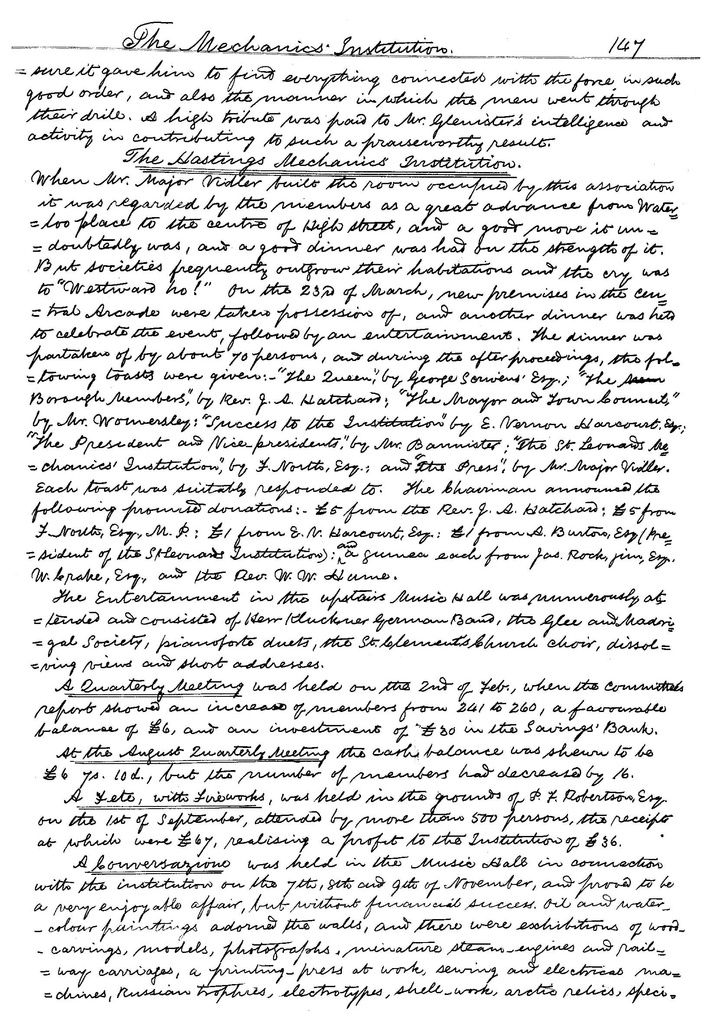 The Mechanics' Institution. 147
=sure it gave him to find everything connected with the force in such
good order, and also the manner in which the men went through
their drile. A high tribute was paid to Mr. Glenister's intelligence and
activity in contributing to such a praiseworthy result.
The Hastings Mechanics Institution.
When Mr. Major Vidler built the room occupied by this association
it was regarded by the members as a great advance from Water=
=loo place to the centre of High street, and a good move it un=
=doubtedly was, and a good dinner was had on the strength of it.
But societies frequently outgrow their habitations and the cry was
to "Westward ho!" On the 23rd of March, new premises in the cen=
=tral Arcade were taken possession of, and another dinner was held
to celebrate the event, followed by an entertainment. The dinner was
partaken of by about 70 persons, and during the after proceedings, the fol=
=lowing toasts were given:- "The Queen", by George Scrivens' Esq.; "The
Borough Members", by Rev. J. A. Hatchard; "The Mayor and Town Council,"
by Mr. Womersley; "Success to the Institution" by E. Vernon Harcourt, Esq.;
"The President and Vice-presidents," by Mr. Bannister; "The St. Leonards Me=
=chanics' Institution", by F. North, Esq.; and "The Press", by Mr. Major Vidler.
Each toast was suitably responded to. The Chairman announced the
following promised donations:- £5 from the Rev. J. A. Hatchard; £5 from
F. North, Esq., M.P.; £1 from E. V. Harcourt, Esq.; £1 from A. Burton, Esq (Pre=
=sident of the St Leonards Institution); and a guinea each from Jas. Rock, jun, Esq.
W. Crake, Esq, and the Rev. W. W. Hume.
The Entertainment in the upstairs Music Hall was numerously at=
=tended and consisted of Herr Kluckner German Band, the Glee and Madri=
gal Society, pianoforte duets, the St. Clement's Church choir, dissol=
=ving views and short addresses.
A Quarterly Meeting was held on the 2nd of Feb., when the committee's
report showed an increase of members from 241 to 260, a favourable
balance of £6, and an investment of £30 in the Savings' Bank.
At the August Quarterly Meeting the cash balance was shewn to be
£6 7s. 10d., but the number of members had decreased by 16.
A Fete, with Fireworks, was held in the grounds of P. F. Robertson, Esq.
on the 1st of September, attended by more than 500 persons, the receipts
at which were £67, realising a profit to the Institution of £36.
A Conversazione was held in the Music Hall in connection
with the institution on the 7th, 8th and 9th of November, and proved to be
a very enjoyable affair, but without financial success. Oil and water-
-colour paintings adorned the walls, and there were exhibitions of wood-
-carvings, models, photographs, minature steam-engines and rail=
=way carriages, a printing-press at work, sewing and electrical ma=
=chines, Russian trophies, electrotypes, shell-work, arctic relics, speci-